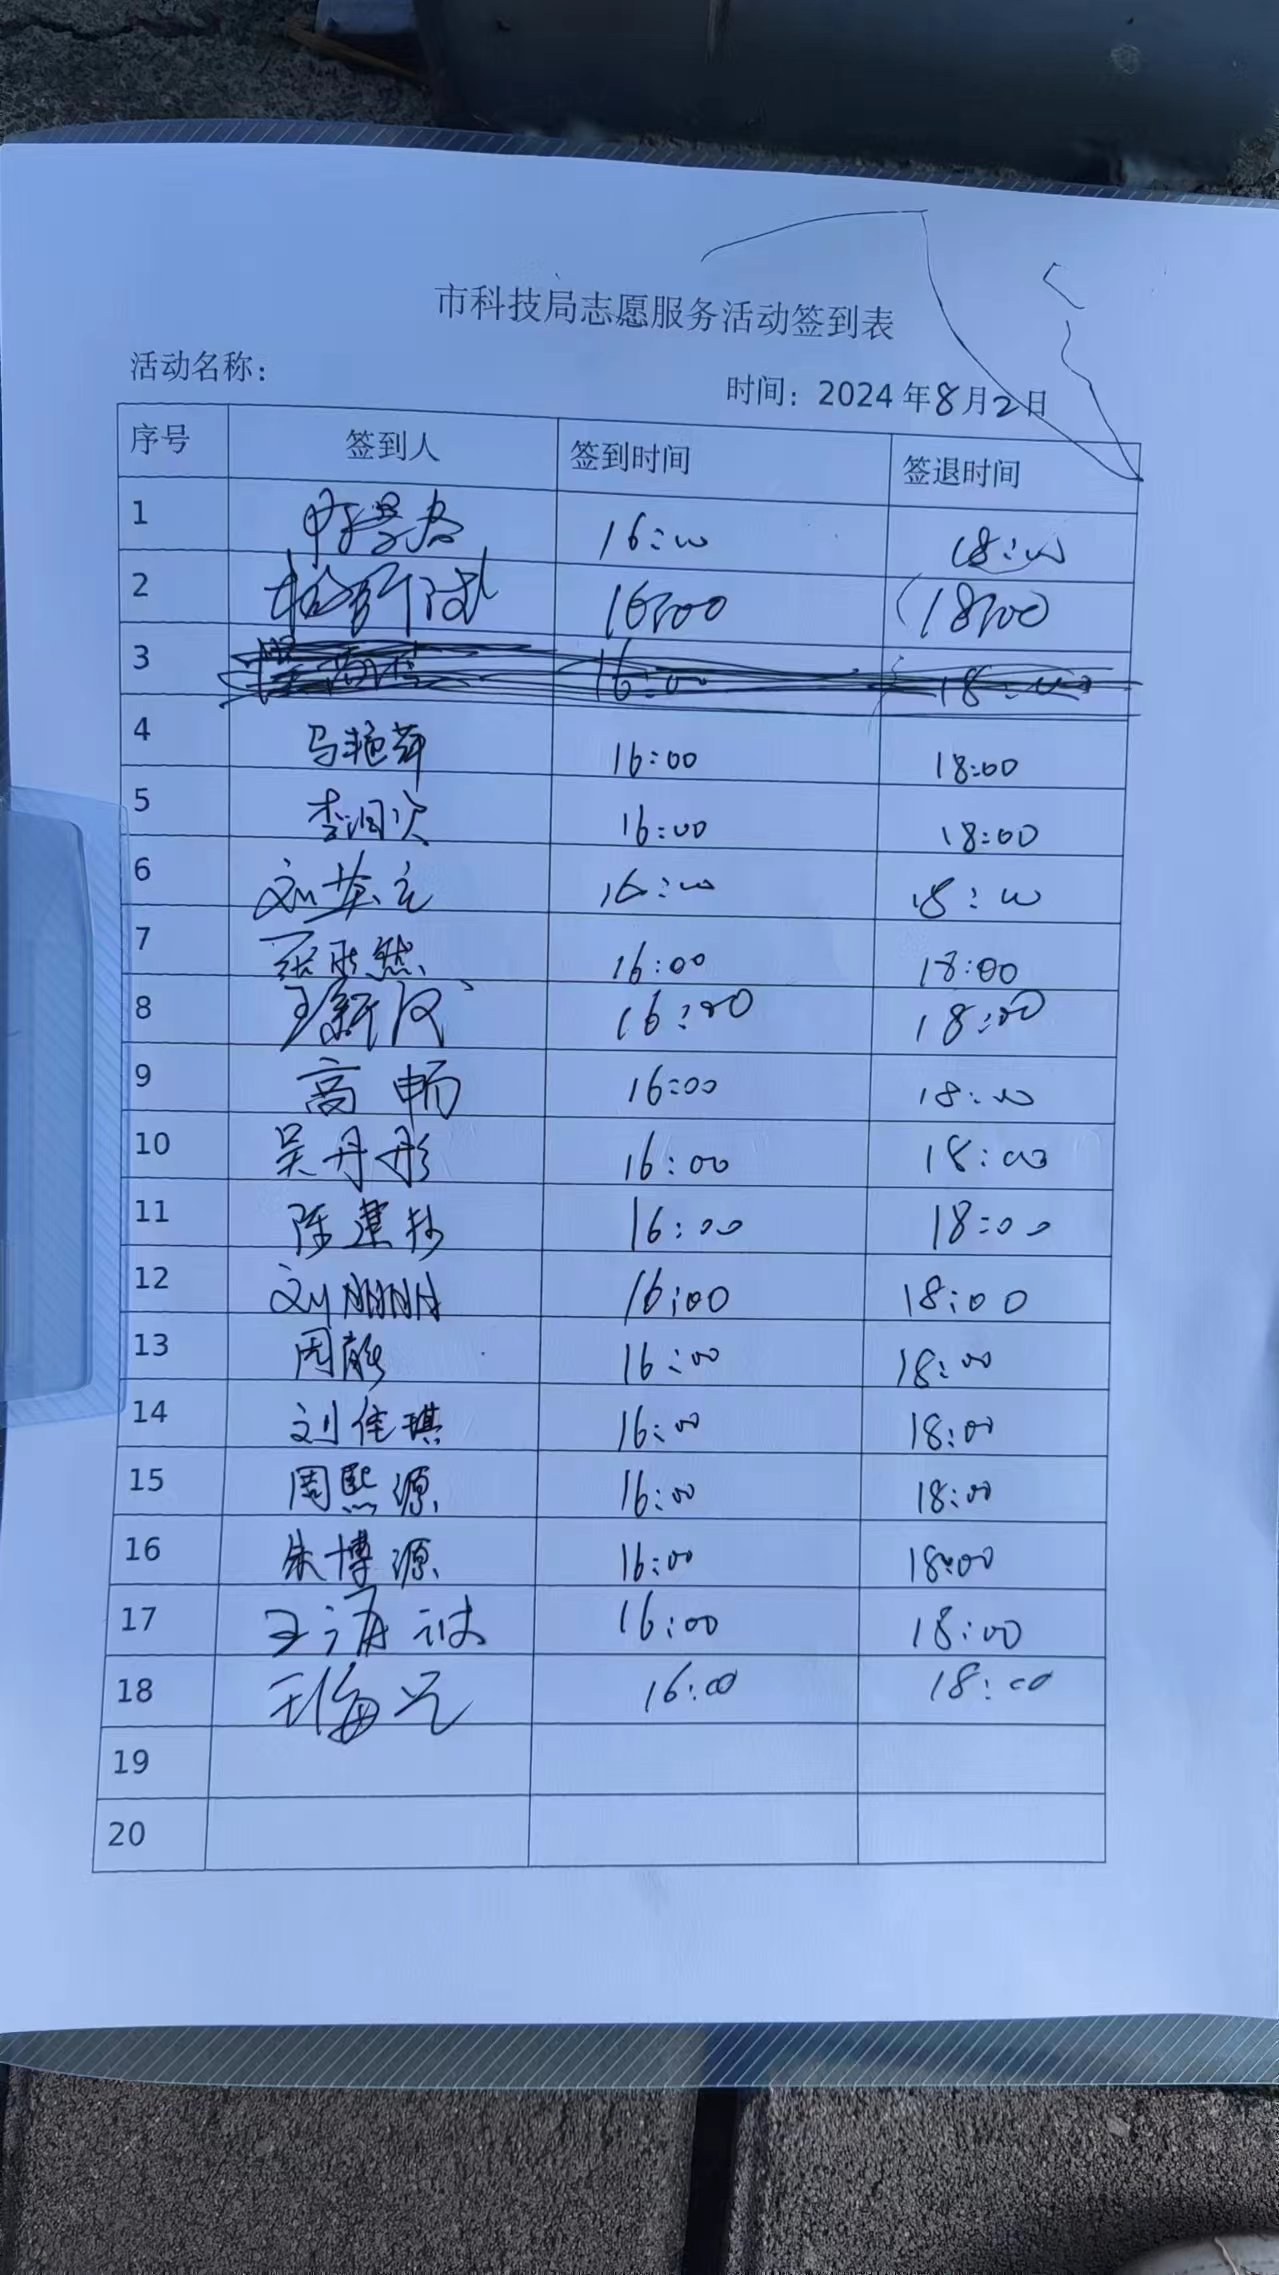 市科技局志愿服务活动签到表
活动名称：
时间：2024年8月2日
序号 签到人 签到时间 签退时间
1 16:00 18:00
2 16:00 18:00
3 16:00 18:00
4 马艳萍 16:00 18:00
5 李 16:00 18:00
6 刘 16:00 18:00
7 张 然 16:00 18:00
8 王新 16:00 18:00
9 高畅 16:00 18:00
10 吴丹彤 16:00 18:00
11 陈 16:00 18:00
12 刘 16:00 18:00
13 周 16:00 18:00
14 刘佳琪 16:00 18:00
15 周熙源 16:00 18:00
16 朱博源 16:00 18:00
17 王 16:00 18:00
18 王海 16:00 18:00
19
20